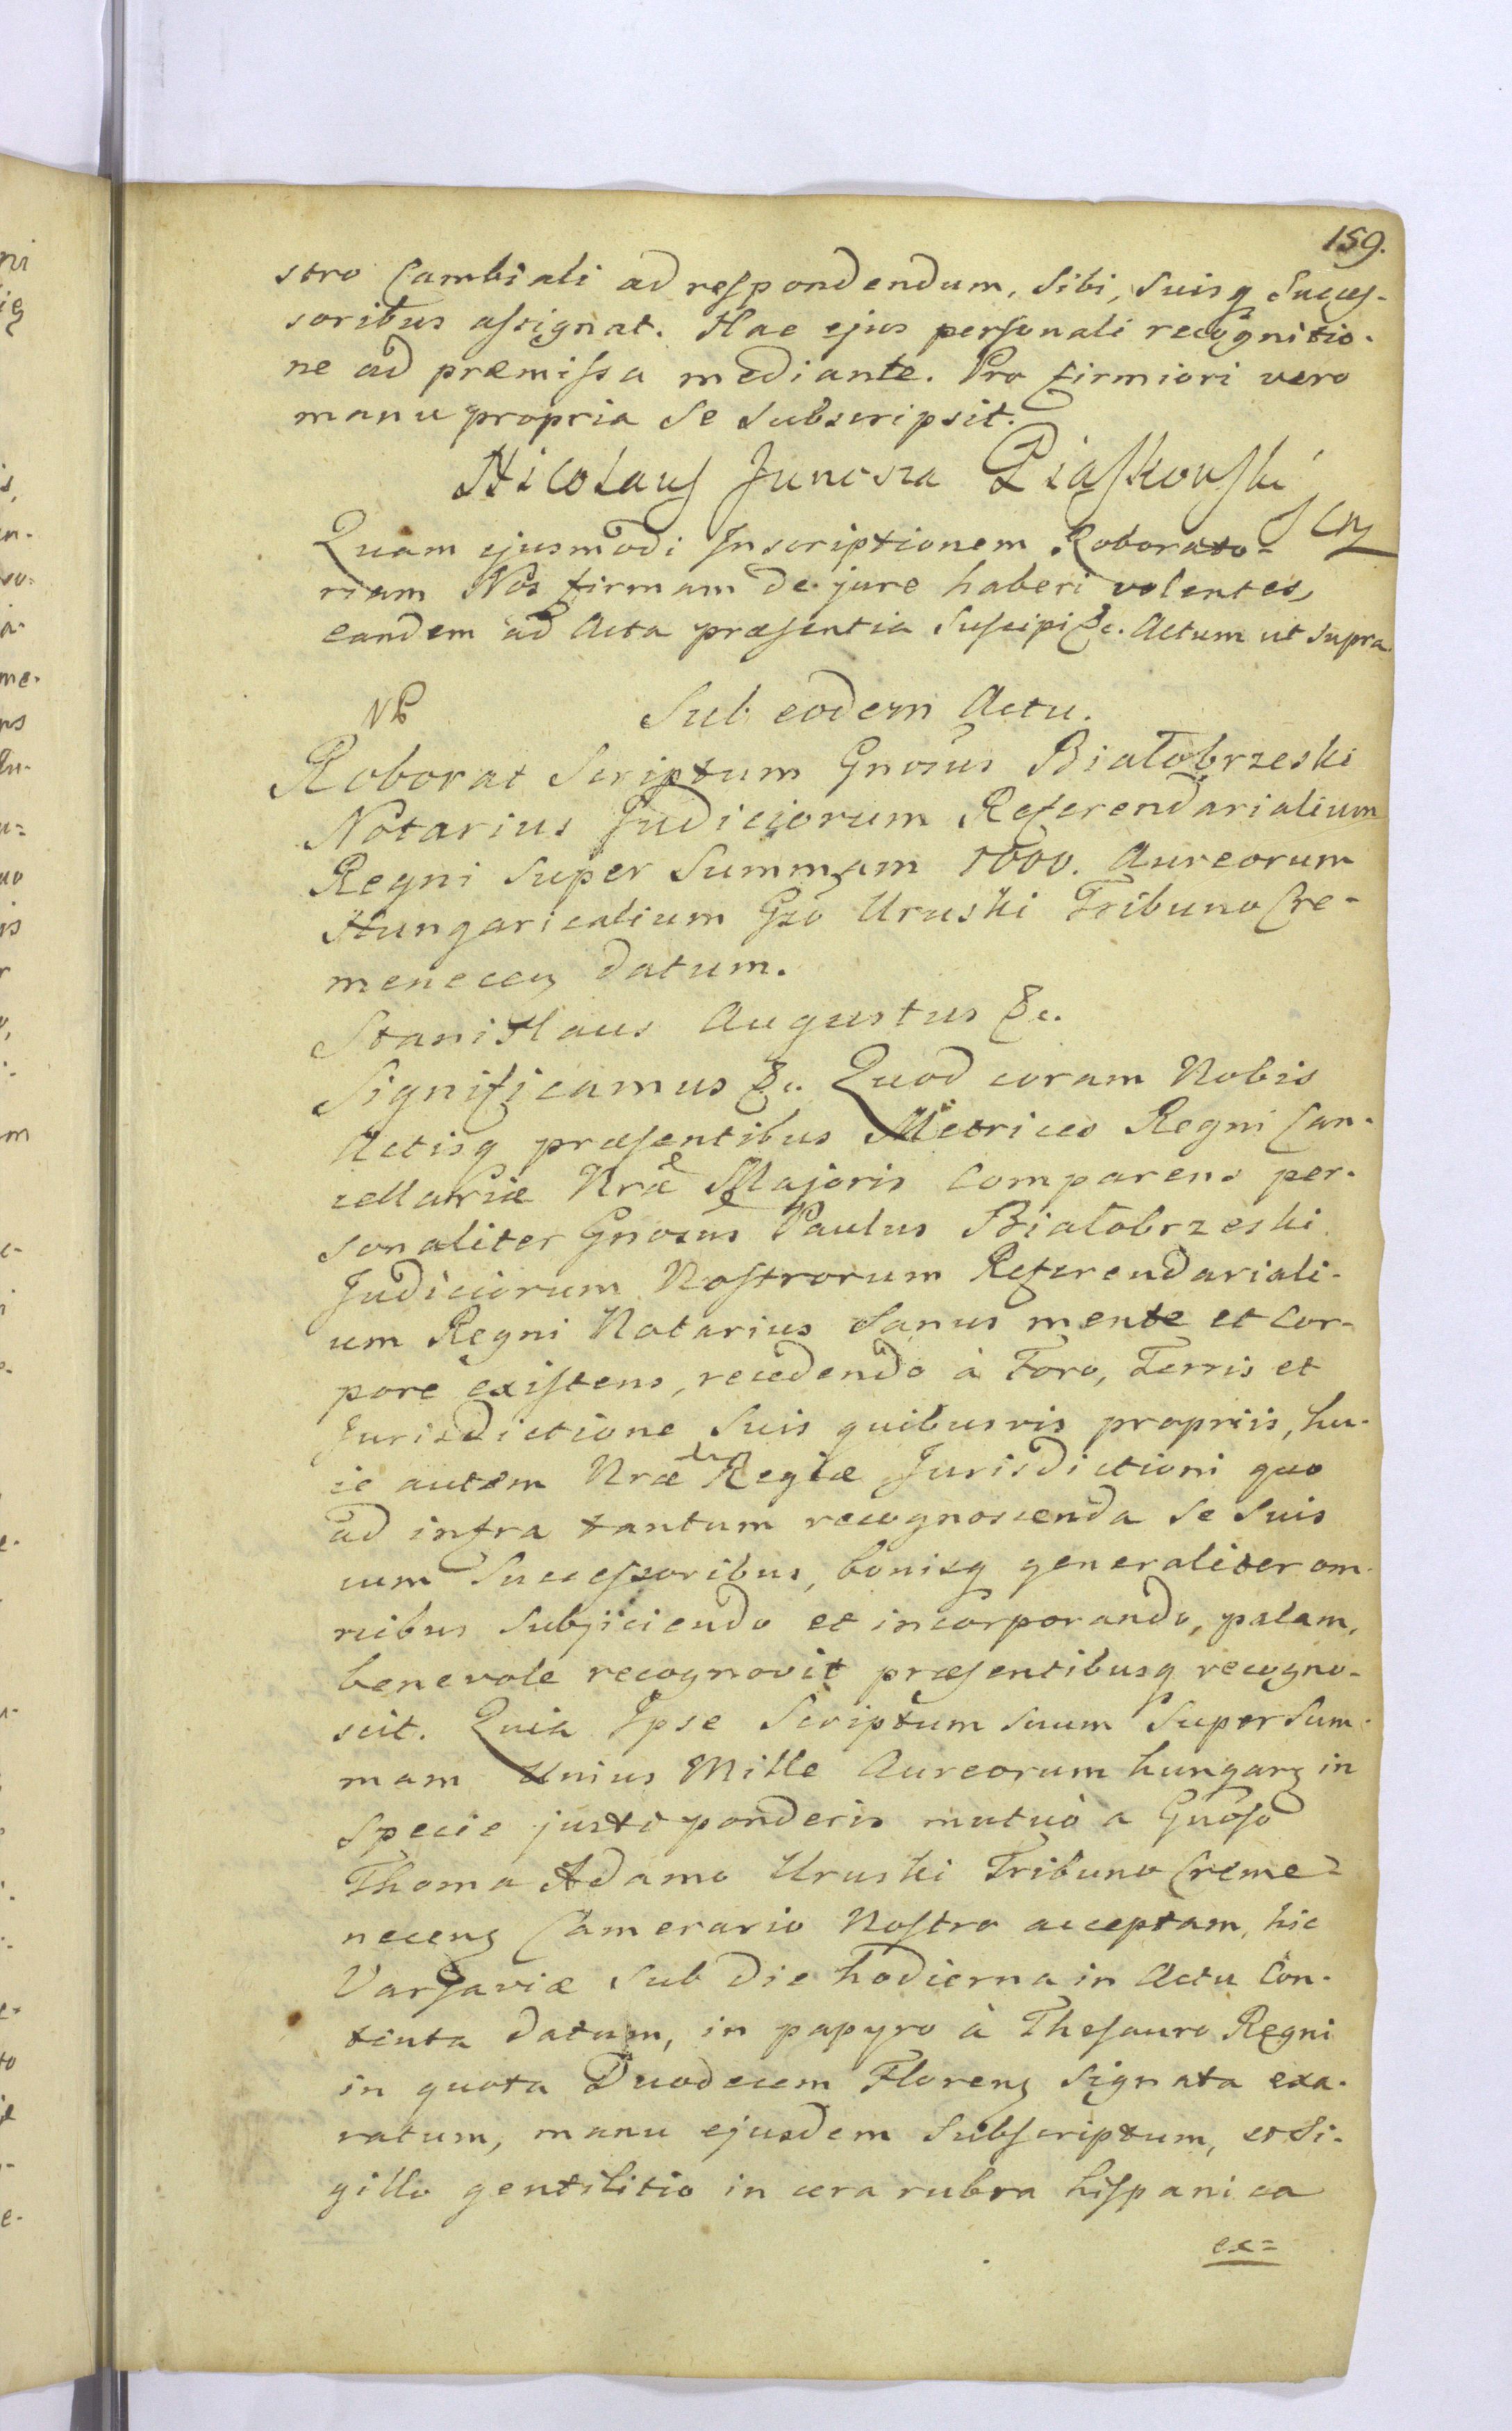 159.
stro Cambiali ad respondendum, Sibi, Suisq Succes-
soribus assignat. Hac ejus personali recognitio-
ne ad præmissa mediante. Pro firmiori vero
manu propria Se Subscripsit.
Nicolaus Junosza Piaskowski
Quam ejusmodi Inscriptionem Roborato-
riam Nos firmam de jure haberi volentes,
eandem ad Acta præsentia Suscipi &c. Actum ut supra
NB Sub eodem Actu.
Roborat Scriptum Gnosus Białobrzeski
Notarius Judiciorum Referendarialium
Regni Super Summam 1000. Aureorum
Hungaricalium Gso Uruski Tribuno Cre-
menecen datum.
Stanislaus Augustus &c.
Significamus &c. Quod coram Nobis
Actisq præsentibus Metrices Regni Can-
cellariæ Nræ Majoris Comparens per-
sonaliter Gnosus Paulus Białobrzeski
Judiciorum Nostrorum Referendariali-
um Regni Notarius Sanus mente et Cor-
pore existens, recedendo à Foro, Terris et
Jurisdictione Suis quibusvis propriis, hu-
ic autem Nræ Regiæ Jurisdictioni quo
ad infra tantum recognoscenda Se Suis
cum Successoribus, bonisq generaliter om-
nibus Subjiciendo et incorporando, palam,
benevole recognovit præsentibusq recogno-
scit. Quia Ipse Scriptum suum Super Sum-
mam Unius Mille Aureorum hungarz in
Specie justi ponderis mutuò a Gnoso
Thoma Adamo Uruski Tribuno Creme-
necenz Camerario Nostro acceptam, hic
Varsaviæ Sub die hodierna in Actu Con-
tenta datum, in papyro à Thesauro Regni
in quota Duodecem Florenz Signata exa-
ratum, manu ejusdem Subscriptum, et Si-
gillo gentilitio in cera rubra hispanica
ex=